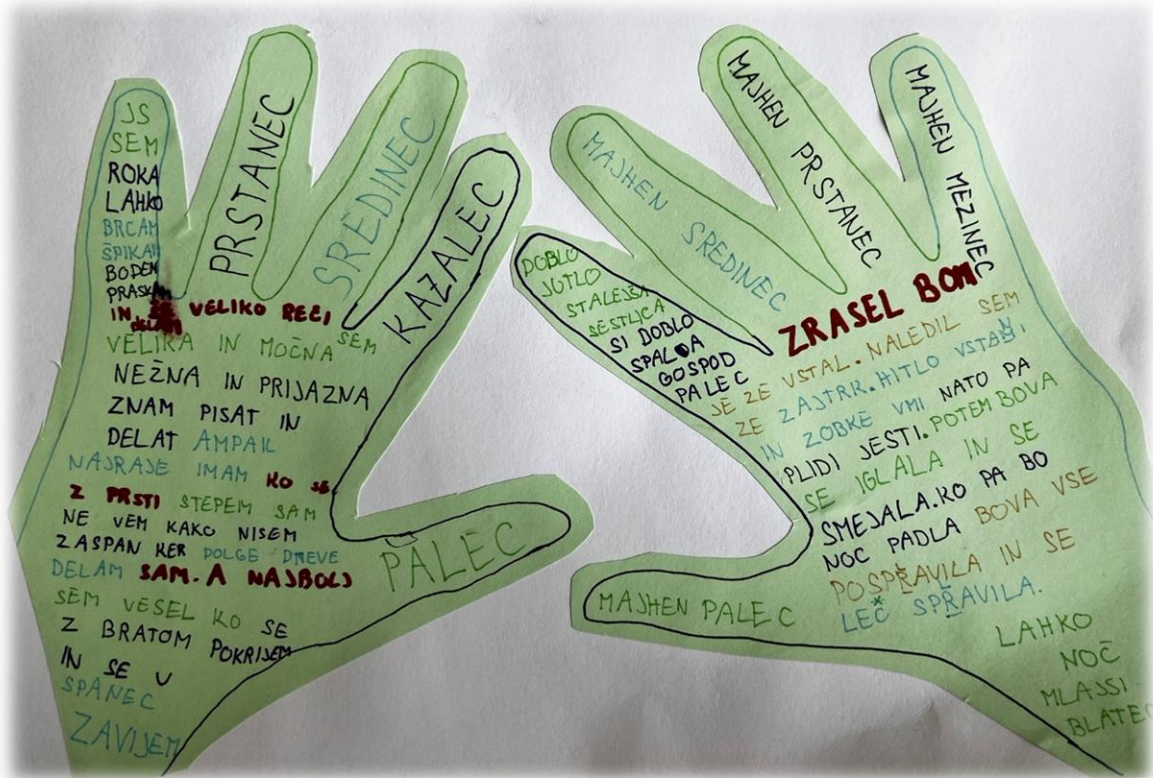 JS
SEM
ROKA
LAHKO
BRCAM
ŠPIKAM
BODEM
PRASKAM
IN ŠE VELIKO REČI
DELAM
SEM
VELIKA IN MOČNA
NEŽNA IN PRIJAZNA
ZNAM PISAT IN
DELAT AMPAK
NAJRAJE IMAM KO SE
Z PRSTI STEPEM SAM
NE VEM KAKO NISEM
ZASPAN KER DOLGE DREVE
DELAM SAM. A NAJBOLJ
SEM VESEL KO SE
Z BRATOM POKRIJEM
IN SE V
SPANEC
ZAVIJEM
PRSTANEC
SREDINEC
KAZALEC
PALEC
DOBLO
JUTLO
STALEJŠA
SESTLICA
SI DOBLO
SPALA
GOSPOD
PALEC
MAJHEN SREDINEC
MAJHEN PRSTANEC
MAJHEN MEZINEC
ZRASEL BOM
JE ZE VSTAL. NALEDIL SEM
ZE ZAJTRK. HITLO VSTAN
IN ZOBKE VMI NATO PA
PLIDI JESTI. POTEM BOVA
SE IGLALA IN SE
SMEJALA. KO PA BO
NOC PADLA BOVA VSE
POSPRAVILA IN SE
LEČ SPRAVILA.
MAJHEN PALEC
LAHKO
NOČ
MLAJSI
BLATEC